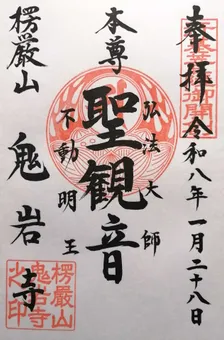 奉拝
令和八年一月二十八日
本尊
聖観音
弘法大師
不動明王
楞厳山
鬼岩寺
楞厳山
鬼岩寺
之印